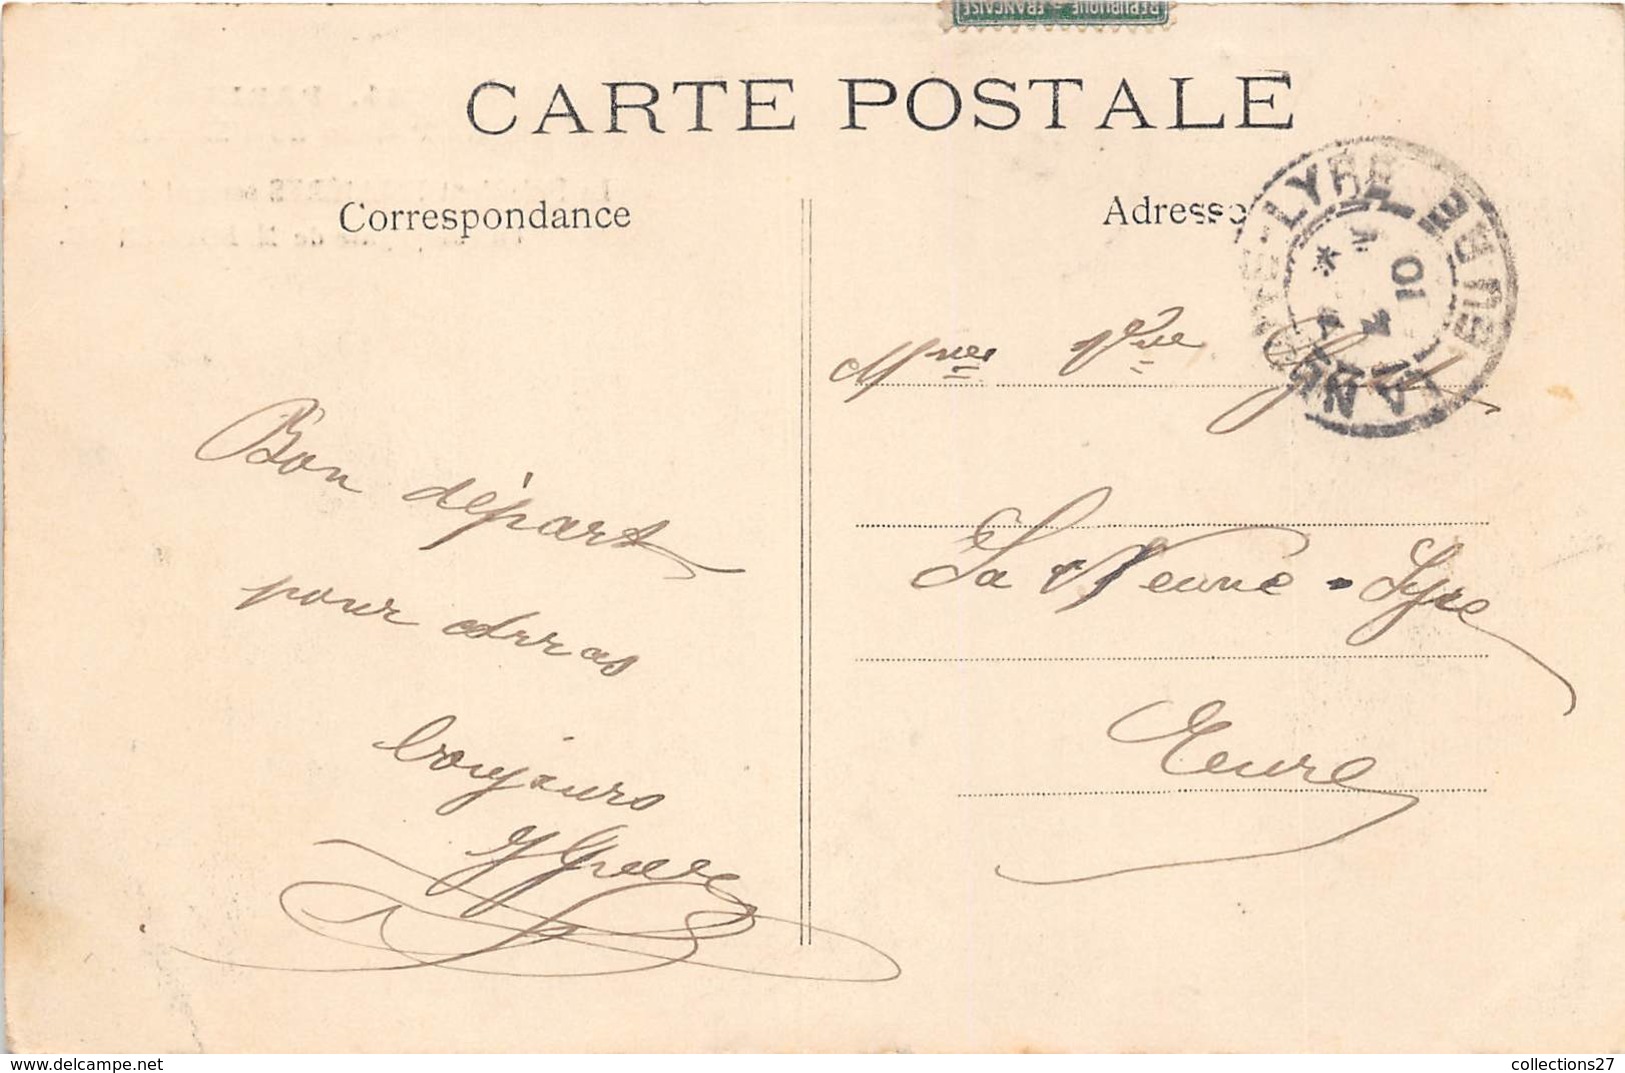 REPUBLIQUE FRANÇAISE
CARTE POSTALE
Correspondance
Adresse
LYRE
EURE
10
Bon départ
pour Arras
toujours
Mme Vve
La Neuve-Lyre
Eure
collections27